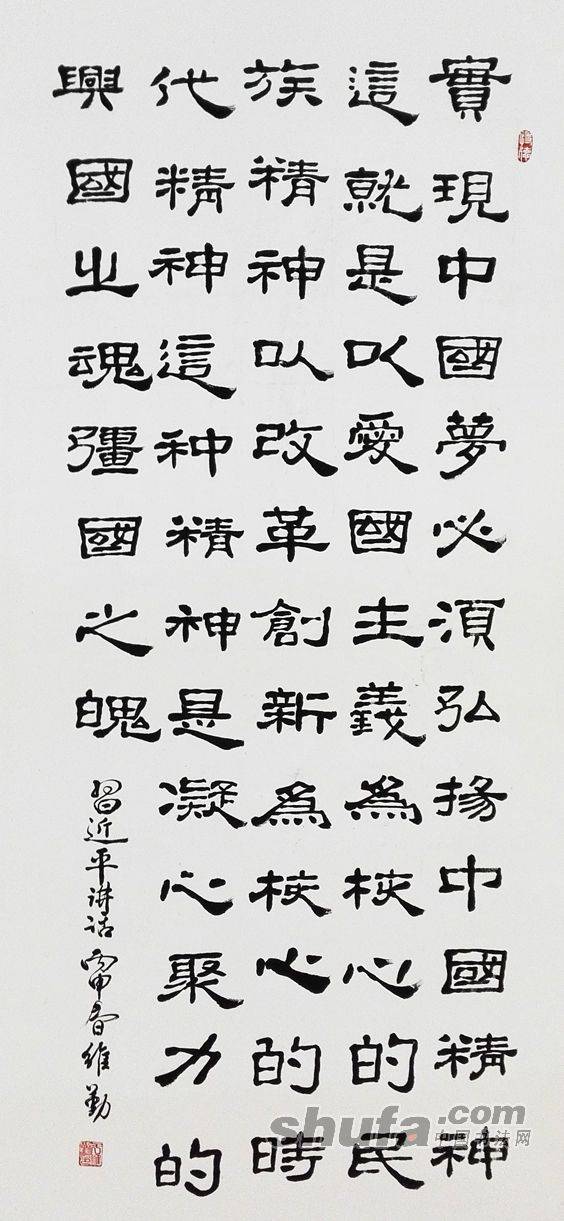 實現中國夢必須弘揚中國精神
這就是以愛國主義為核心的民
族精神以改革創新為核心的時
代精神這种精神是凝心聚力的
興國之魂彊國之魄
習近平讲话 丙申春維勤
shufa.com
中国书法网